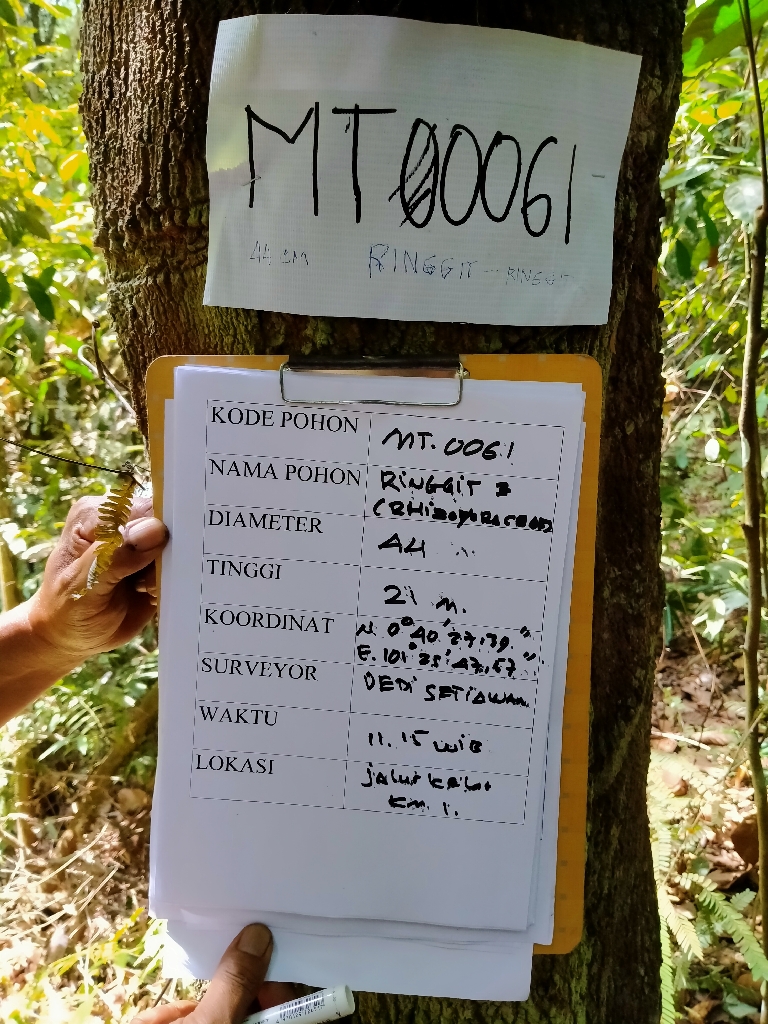 MT00061
44 cm RINGGIT--- RINGGIT
KODE POHON MT. 0061
NAMA POHON RINGGIT
DIAMETER 44
TINGGI 21 m.
KOORDINAT N. 0° 40' 27,39"
E. 101° 25' 47,57"
SURVEYOR DEDI SETIAWAN
WAKTU 11.15 WIB
LOKASI jalur
KM 1.